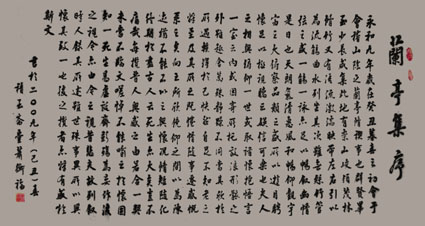 蘭亭集序
永和九年歲在癸丑暮春之初會于
會稽山陰之蘭亭脩禊事也群賢畢
至少長咸集此地有崇山峻領茂林
脩竹又有清流激湍映帶左右引以
為流觴曲水列坐其次雖無絲竹管
弦之盛一觴一詠亦足以暢敘幽情
是日也天朗氣清惠風和暢仰觀宇
宙之大俯察品類之盛所以遊目騁
懷足以極視聽之娛信可樂也夫人
之相與俯仰一世或取諸懷抱悟言
一室之內或因寄所託放浪形骸之
外雖趣舍萬殊靜躁不同當其欣於
所遇暫得於己快然自足不知老之
將至及其所之既倦情隨事遷感慨
係之矣向之所欣俛仰之間以為陳
迹猶不能不以之興懷況脩短隨化
終期於盡古人云死生亦大矣豈不
痛哉每攬昔人興感之由若合一契
未嘗不臨文嗟悼不能喻之於懷固
知一死生為虛誕齊彭殤為妄作後
之視今亦由今之視昔悲夫故列敘
時人錄其所述雖世殊事異所以興
懷其致一也後之攬者亦將有感於
斯文
書於二〇〇九年(己丑)春